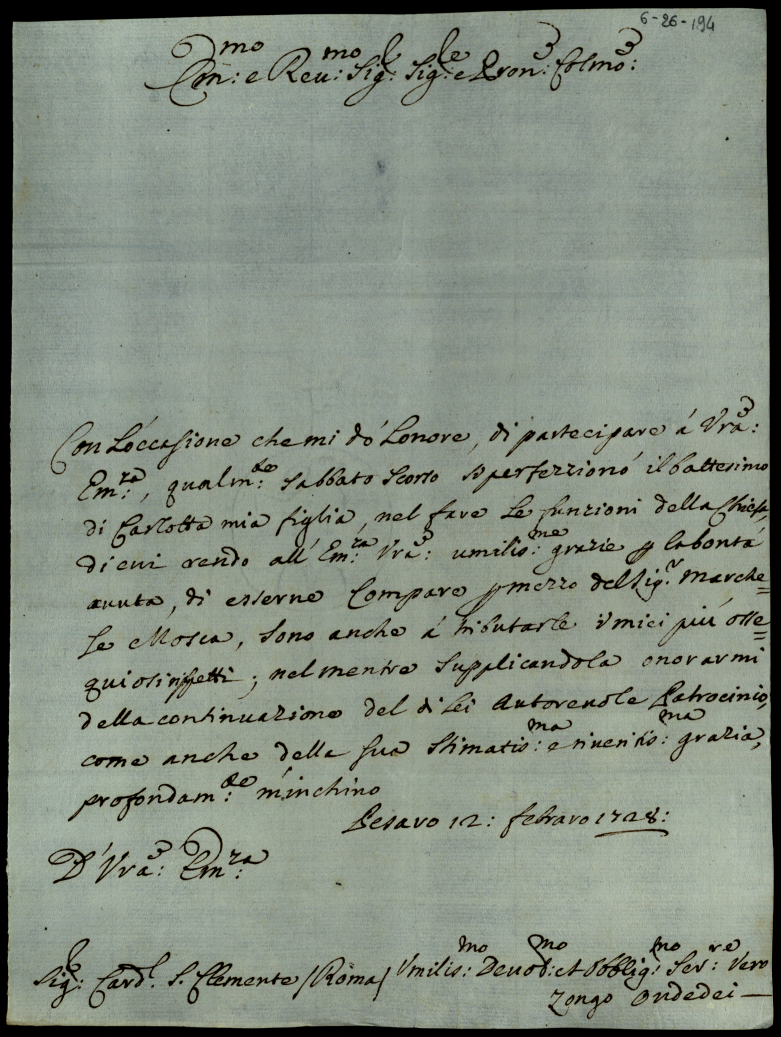 6-26-194
Em:mo e Reu:mo Sig:r Sig:re e Pron:e Colmo:
Con L'occasione che mi dó Lonore, di partecipare á Vrã:
Em:za, qualm:te Sabbato Scorso si perfezzionó il battesimo
di Carlotta mia figlia, nel fare le funzioni della Chiesa,
di cui rendo all'Em:za Vrã: umilis:me grazie p la bontá
auuta, di esserne Compare p mezzo del Sig:r Marche=
se Mosca, sono anche á tributarle i miei piú osse=
quiosi rispetti; nel mentre supplicandola onorarmi
della continuazione del di Lei Autoreuole Patrocinio,
come anche della sua stimatis:ma e riueritis:ma grazia,
profondam:te m'inchino
Pesaro 12: febraro 1728:
D'Vrã: Em:za
Sig:r Card.l S. Clemente /Roma/ Vmilis:mo Deuod:mo et Obblig:mo Ser:re Vero
Zongo Ondedei